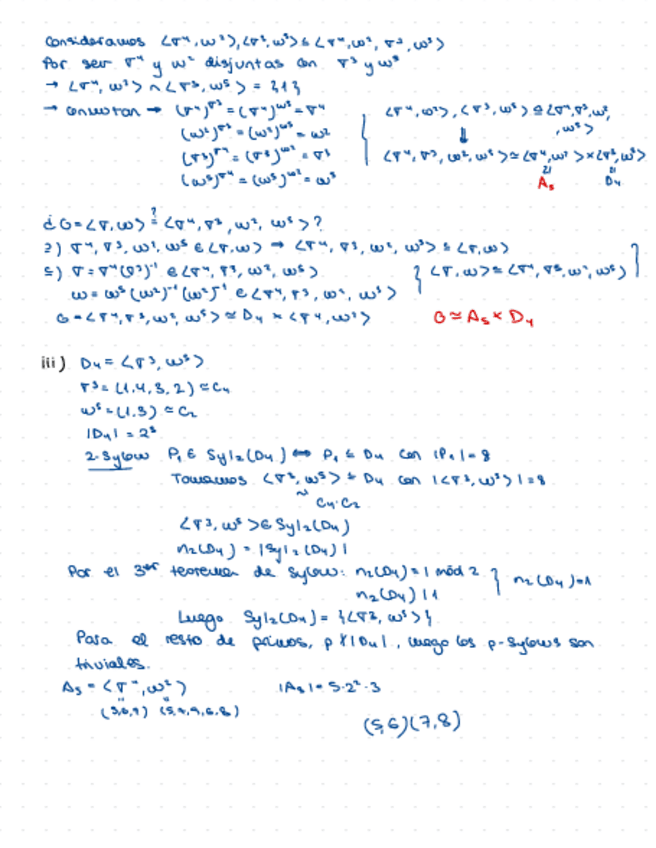 Consideramos <σ⁴, ω²>, <σ³, ω⁵> ≤ <σ⁴, ω², σ³, ω⁵>
Por ser σ⁴ y ω² disjuntas con σ³ y ω⁵
→ <σ⁴, ω²> ∩ <σ³, ω⁵> = {1}
→ conmutan → (σ⁴)^σ³ = (σ⁴)^ω⁵ = σ⁴
(ω²)^σ³ = (ω²)^ω⁵ = ω²
(σ³)^σ⁴ = (σ³)^ω² = σ³
(ω⁵)^σ⁴ = (ω⁵)^ω² = ω⁵
<σ⁴, ω²>, <σ³, ω⁵> ⊴ <σ⁴, σ³, ω², ω⁵>
⇓
<σ⁴, σ³, ω², ω⁵> ≃ <σ⁴, ω²> × <σ³, ω⁵>
A₅ D₄
¿G = <σ, ω> ≟ <σ⁴, σ³, ω², ω⁵>?
⊇) σ⁴, σ³, ω², ω⁵ ∈ <σ, ω> → <σ⁴, σ³, ω², ω⁵> ≤ <σ, ω>
≤) σ = σ⁴(σ³)⁻¹ ∈ <σ⁴, σ³, ω², ω⁵>
ω = ω⁵(ω²)⁻¹(ω²)⁻¹ ∈ <σ⁴, σ³, ω², ω⁵>
} <σ, ω> = <σ⁴, σ³, ω², ω⁵>
G = <σ⁴, σ³, ω², ω⁵> ≃ D₄ × <σ⁴, ω²>
G ≃ A₅ × D₄
iii) D₄ = <σ³, ω⁵>
σ³ = (1,4,3,2) ≃ C₄
ω⁵ = (1,3) ≃ C₂
|D₄| = 2³
2-Sylow P₁ ∈ Syl₂(D₄) ↔ P₁ ≤ D₄ con |P₁| = 8
Tomamos <σ³, ω⁵> ≤ D₄ con |<σ³, ω⁵>| = 8
≃ C₄·C₂
<σ³, ω⁵> ∈ Syl₂(D₄)
n₂(D₄) = |Syl₂(D₄)|
Por el 3er teorema de Sylow: n₂(D₄) ≡ 1 mód 2
n₂(D₄) | 1
} n₂(D₄) = 1
Luego Syl₂(D₄) = {<σ³, ω⁵>}
Para el resto de primos, p ∤ |D₄|, luego los p-Sylows son
triviales.
A₅ = <σ⁴, ω²> |A₅| = 5·2²·3
(5,6,7) (5,7,9,6,8)
(5,6)(7,8)